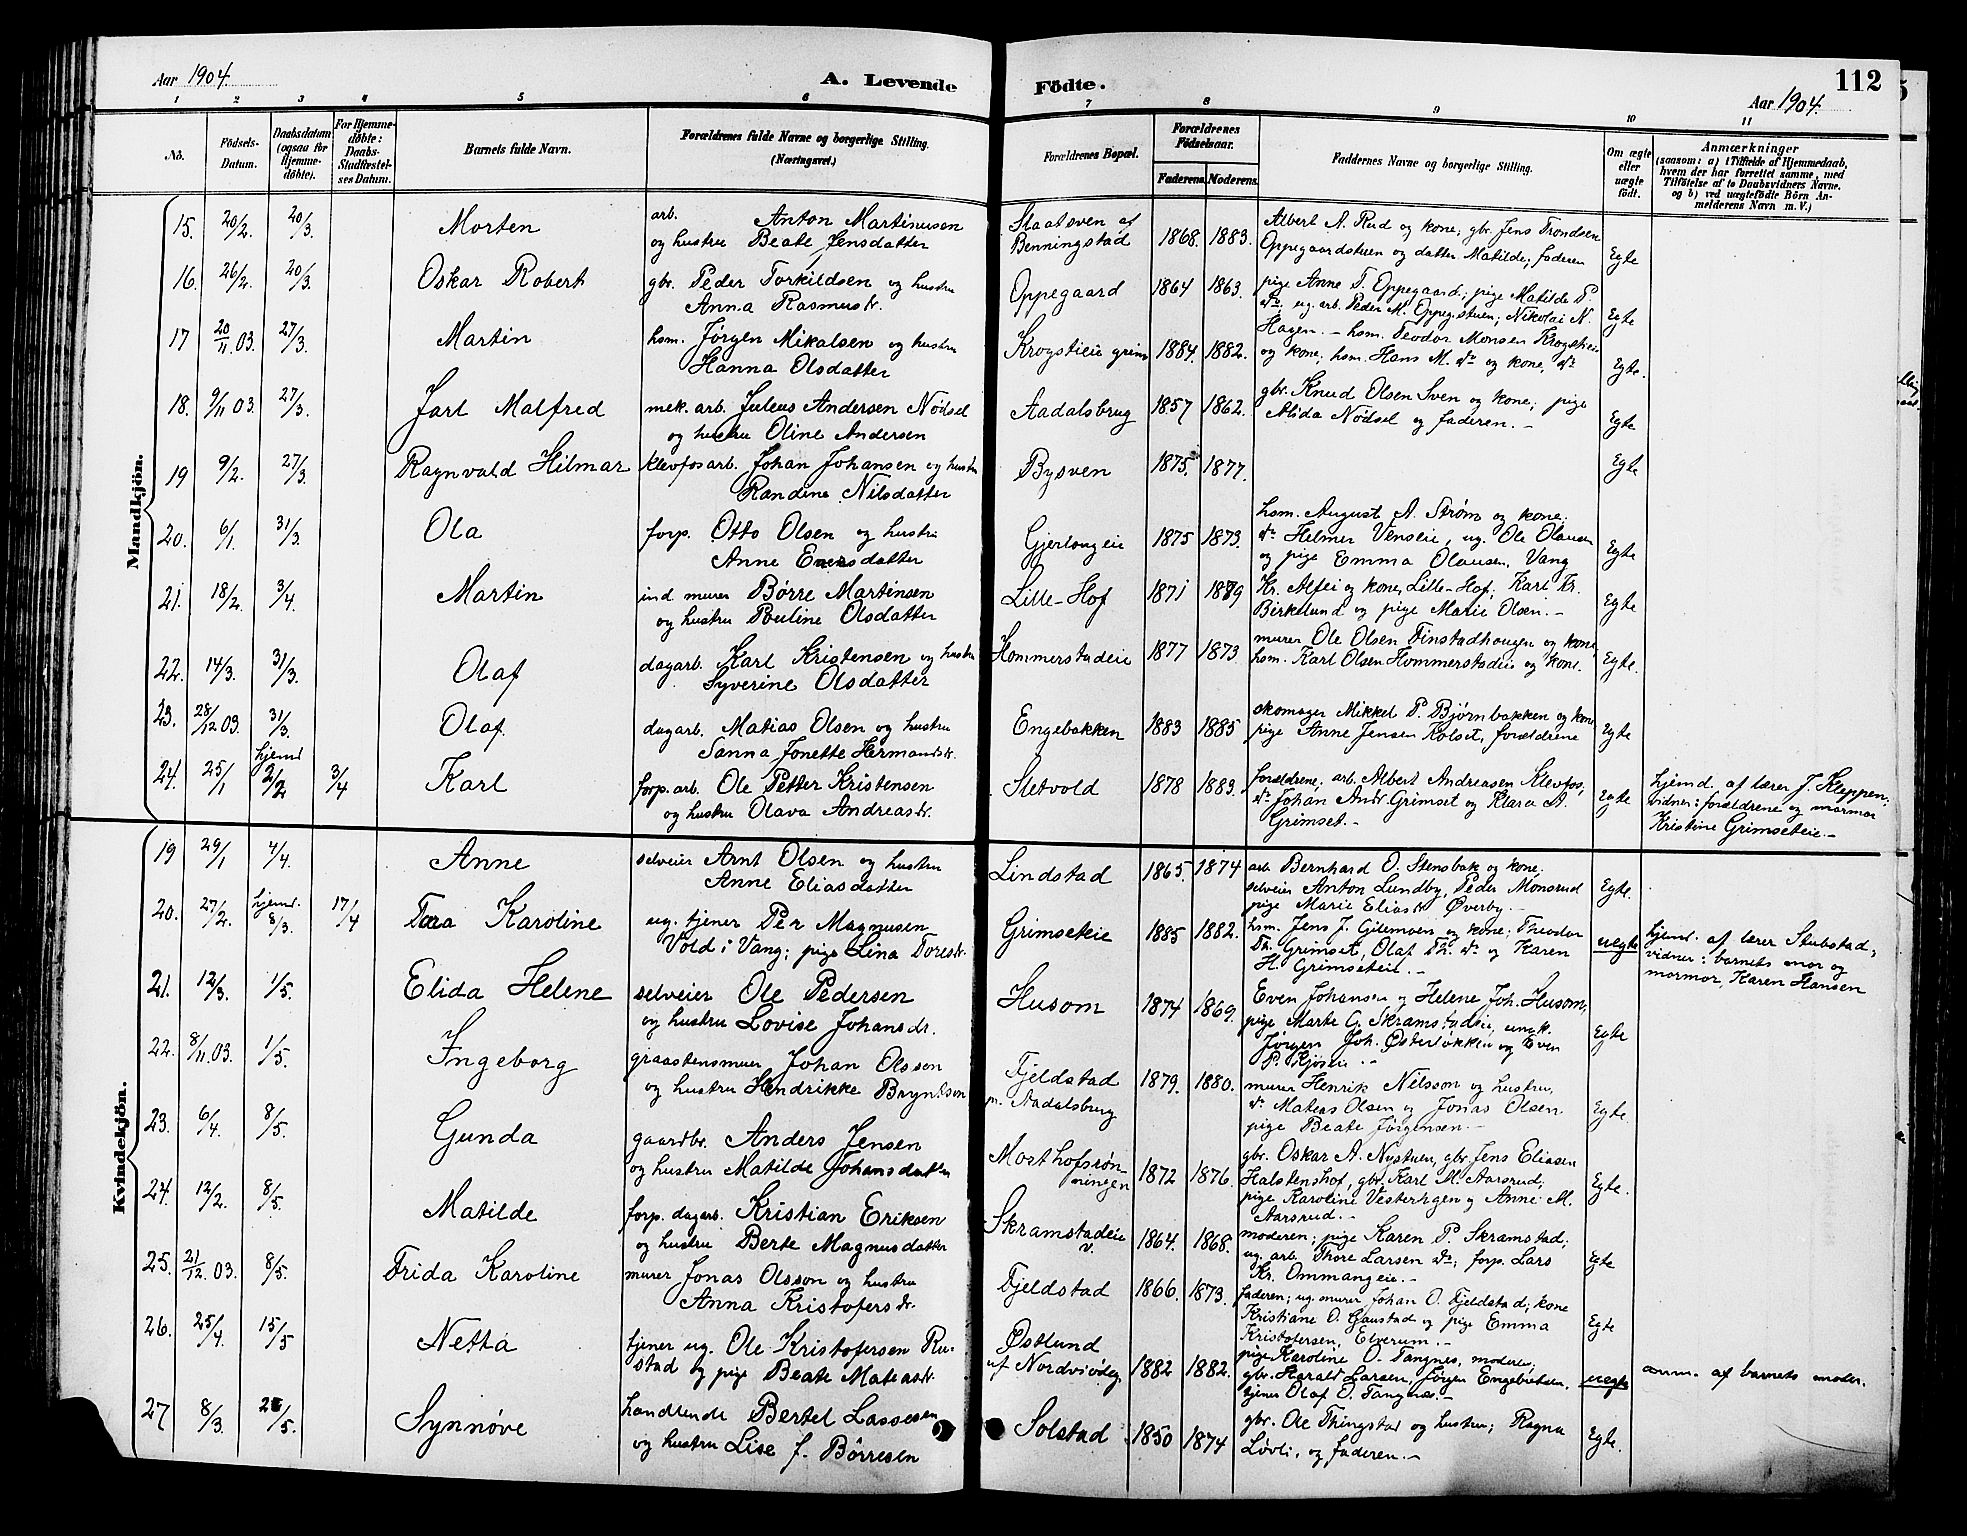 Aar 1904.
A. Levende Födte.
112
Aar 1904.
1 2 3 4 5 6 7 8 9 10 11
No.
Födsels-Datum.
Daabsdatum (ogsaa for Hjemmedöbte).
For Hjemmedöbte: Daabs-Stadfæstelses Datum.
Barnets fulde Navn.
Forældrenes fulde Navne og borgerlige Stilling. (Næringsvei.)
Forældrenes Bopæl.
Forældrenes Födselsaar.
Faderens. Moderens.
Faddernes Navne og borgerlige Stilling.
Om ægte eller uægte födt.
Anmærkninger
(saasom: a) i Tilfælde af Hjemmedaab,
hvem der har forrettet samme, med
Tilföielse af to Daabsvidners Navne.
og b) ved uægtefödte Börn Anmelderens Navn m. V.)
Mandkjön.
15. 20/2. 20/3. Morten arb. Anton Martinussen
og hustru Beate Jensdatter
Staatsven af Benningstad 1868. 1883.
Albert A. Rud og kone; gbr. Jens Trondsen
Oppegaardstuen og datter Matilde; faderen Egte
16. 26/2. 20/3. Oskar Robert gbr. Peder Torkildsen og hustru
Anna Rasmusdr.
Oppegaard 1864 1863.
pige Anne T. Oppegaard; pige Matilde P.
do; ug. arb. Peder M. Oppegstuen; Nikolai N.
Hagen. - Egte
17 20/11 03. 27/3. Martin hsm. Jørgen Mikalsen og hustru
Hanna Olsdatter
Krogstieie grim 1884. 1882.
hsm. Teodor Monsen Krogstieie
og kone, hsm. Hans M. do og kone, do Egte.
18. 9/11 03. 27/3. Jarl Malfred mek. arb. Julius Andersen Nødsel
og hustru Oline Andersen
Aadalsbrug 1857 1862.
gbr. Knud Olsen Sven og kone; pige
Alida Nødsel og faderen. - Egte
19 9/2. 27/3. Ragnvald Hilmar Klevfosarb. Johan Johansen og hustru
Randine Nilsdatter
Bysven 1875. 1877. Egte
20. 6/1. 31/3. Ola forp. Otto Olsen og hustru
Anne Evensdatter
Gjerlougeie 1875 1873.
hsm. August A. Strøm og kone.
do Helmer Venseie, ug. Ole Olausen
og pige Emma Olausen, Vang Egte
21. 18/2. 3/4. Martin ind murer Børre Martinsen
og hustru Pouline Olsdatter
Lille-Hof 1871 1879
Kr. Alfei og kone, Lille-Hof; Karl Kr.
Birkelund og pige Marie Olsen. - Egte
22. 14/3. 31/3. Olaf dagarb. Karl Kristensen og hustru
Syverine Olsdatter
Hommerstadeie 1877 1873.
murer Ole Olsen Finstadhaugen og kone
hsm. Karl Olsen Hommerstadeie og kone. Egte.
23. 28/12 03. 31/3. Olaf. dagarb. Matias Olsen og hustru
Sanna Jonette Hermansdr.
Engebakken 1883 1885
skomager Mikkel P. Bjørnbakken og kone
pige Anne Jensen Kolset, forældrene Egte
24. 25/1 hjemd 2/2 3/4 Karl forp. arb. Ole Petter Kristensen
og hustru Olava Andreasdr.
Sletvold 1878 1883.
forældrene; arb. Albert Andreasen Klevfos,
do Johan Andr. Grimset og Klara A.
Grimset. - Egte
hjemd. af lærer J. Kleppen.
vidner: forældrene og mormor
Kristine Grimseteie. -
Kvindekjön.
19 29/1 4/4. Anne selveier Arnt Olsen og hustru
Anne Eliasdatter
Lindstad 1865. 1874
arb Bernhard O. Stensbak og kone.
selveier Anton Lundby, Peder Monsrud
pige Marie Eliasdr Øverby. - Egte.
20. 27/2. hjemd. 8/3. 17/4 Tora Karoline ug. tjener Per Magnusen
Vold i Vang; pige Lina Toresdr.
Grimseteie 1885 1882.
hsm. Jens J. Gilemoen og kone; Theodor
Th. Grimset, Olaf Th. do og Karen
H. Grimseteie. - uegte
hjemd. af lærer Stubstad,
vidner: barnets mor og
mormor, Karen Hansen
21. 12/3. 1/5. Elida Helene selveier Ole Pedersen
og hustru Lovise Johansdr.
Husom 1874 1869.
Even Johansen og Helene Joh. Husom,
pige Marte G. Skramstadeie, umk.
Jørgen Joh. Østerløkken og Even
P. Kjøseie. - Egte
22. 8/11 03. 1/5. Ingeborg graastensmurer Johan Olsson
og hustru Hendrikke Bryntson
Fjeldstad pr. Aadalsbrug 1879. 1880.
murer Henrik Nilsson og hustru,
do Matias Olsen og Jonas Olsen
pige Beate Jørgensen. - Egte.
23. 6/4. 8/5. Gunda gaardbr. Anders Jensen
og hustru Matilde Johansdatter
Morthofsrønningen 1872 1876.
gbr. Oskar A. Nystuen, gbr. Jens Eliasen
Halstenshof, gbr. Karl M. Aarsrud;
pige Karoline Vesterhgen og Anne M.
Aarsrud. - Egte.
24. 12/2. 8/5. Matilde forp. dagarb. Kristian Eriksen
og hustru Berte Magnusdatter
Skramstadeie v. 1864. 1868.
moderen; pige Karen P. Skramstad;
ug. arb. Thore Larsen do; forp. Lars
Kr. Ommangeie. - Egte
25. 21/12 03. 8/5. Frida Karoline murer Jonas Olsson og hustru
Anna Kristofersdr.
Fjeldstad 1866. 1873.
faderen; ug. murer Johan O. Fjeldstad; kone
Kristiane O. Gaustad og pige Emma
Kristofersen, Elverum. - Egte
26. 25/4 15/5 Netta tjener ug. Ole Kristofersen Rustad og pige Beate Mateasdr.
Østlund af Nordviodeg 1882 1882.
pige Karoline O. Tangnes, moderen;
gbr. Harald Larsen, Jørgen Engebretsen,
tjener Olaf O. Tangnes. - uegte
anm. af barnets moder.
27 8/3. 23/5. Synnøve handlende Bertel Lassesen
og hustru Lise f. Børresen
Solstad 1850 1874
gbr. Ole Thingstad og hustru; Ragna
Løvli, og faderen. - Egte.